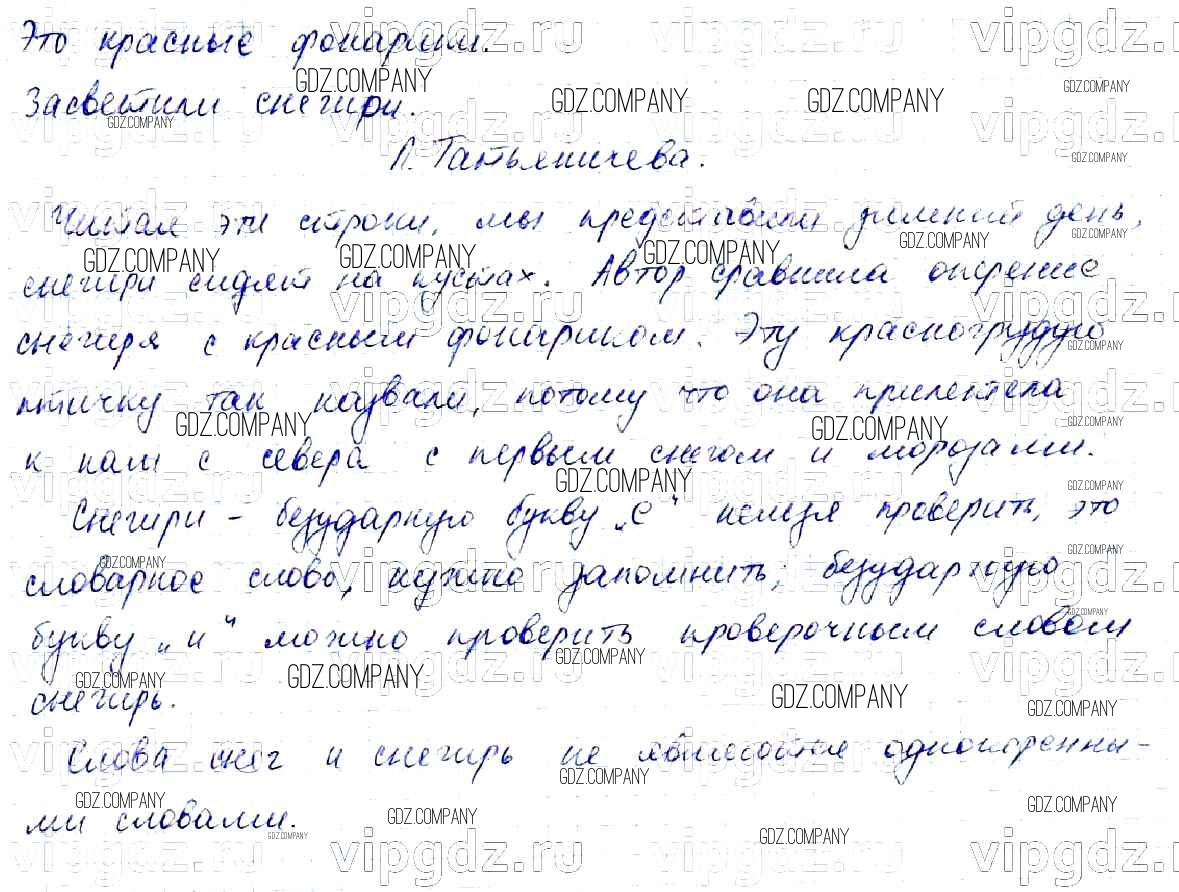 Это красные фонарики.
Засветили снегири.
Л. Татьяничева.
Читая эти строки, мы представили зимний день,
снегири сидят на кустах. Автор сравнила оперение
снегиря с красным фонариком. Эту красногрудую
птичку так назвали, потому что она прилетела
к нам с севера с первым снегом и морозами.
Снегири – безударную букву „е“ нельзя проверить, это
словарное слово, нужно запомнить; безударную
букву „и“ можно проверить проверочным словом
снегирь.
Слова снег и снегирь не являются однокоренны-
ми словами.
vipgdz.ru
GDZ.COMPANY